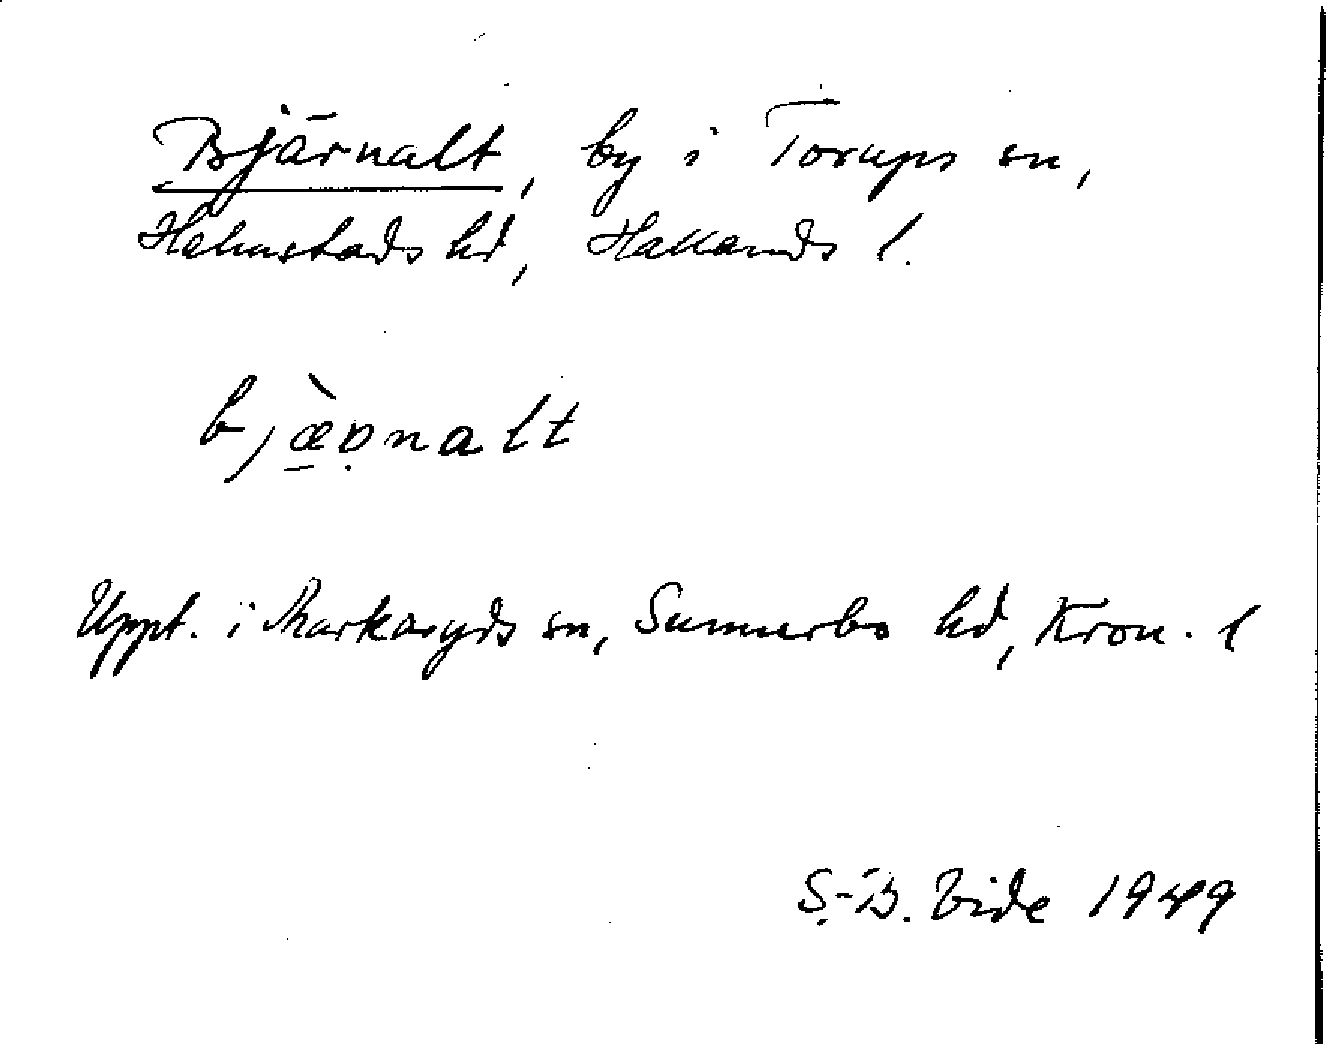 Bjärnalt, by i Torups sn,
Halmstads hd, Hallands l.
bjæ̀ṇnalt
Uppt. i Markaryds sn, Sunnerbo hd, Kron. l
S.-B. Vide 1949